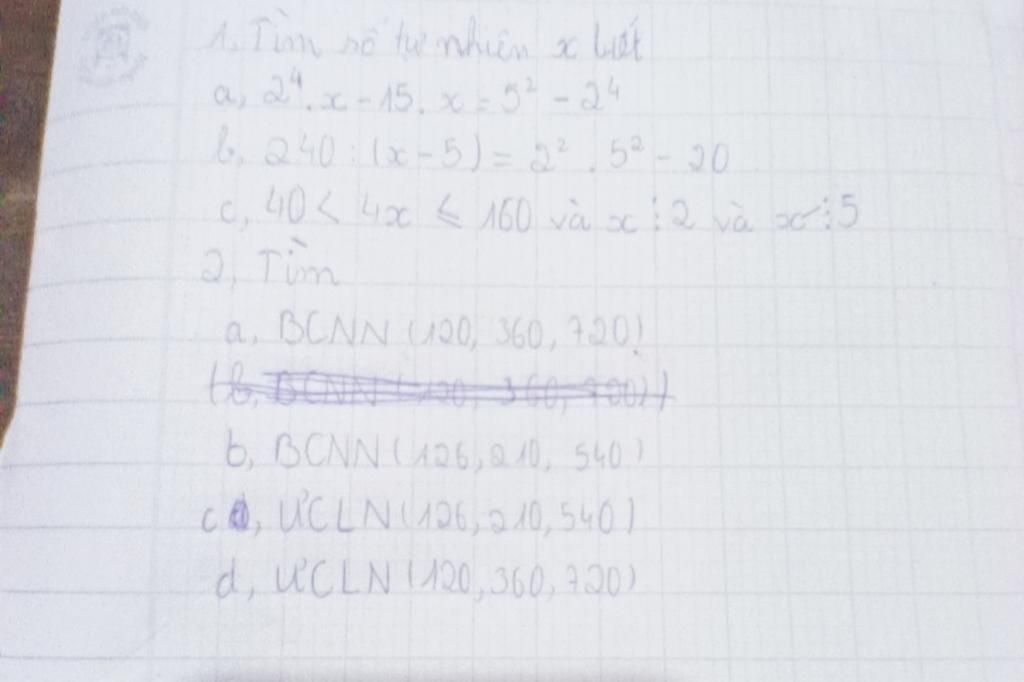 1, Tìm số tự nhiên x biết
a, 2⁴. x - 15. x = 5² - 2⁴
b, 240 : (x - 5) = 2² . 5² - 20
c, 40 < 4x ≤ 160 và x ⋮ 2 và x ⋮ 5
2, Tìm
a, BCNN (120, 360, 720)
b, BCNN (126, 210, 540)
c, ƯCLN (126, 210, 540)
d, ƯCLN (120, 360, 720)